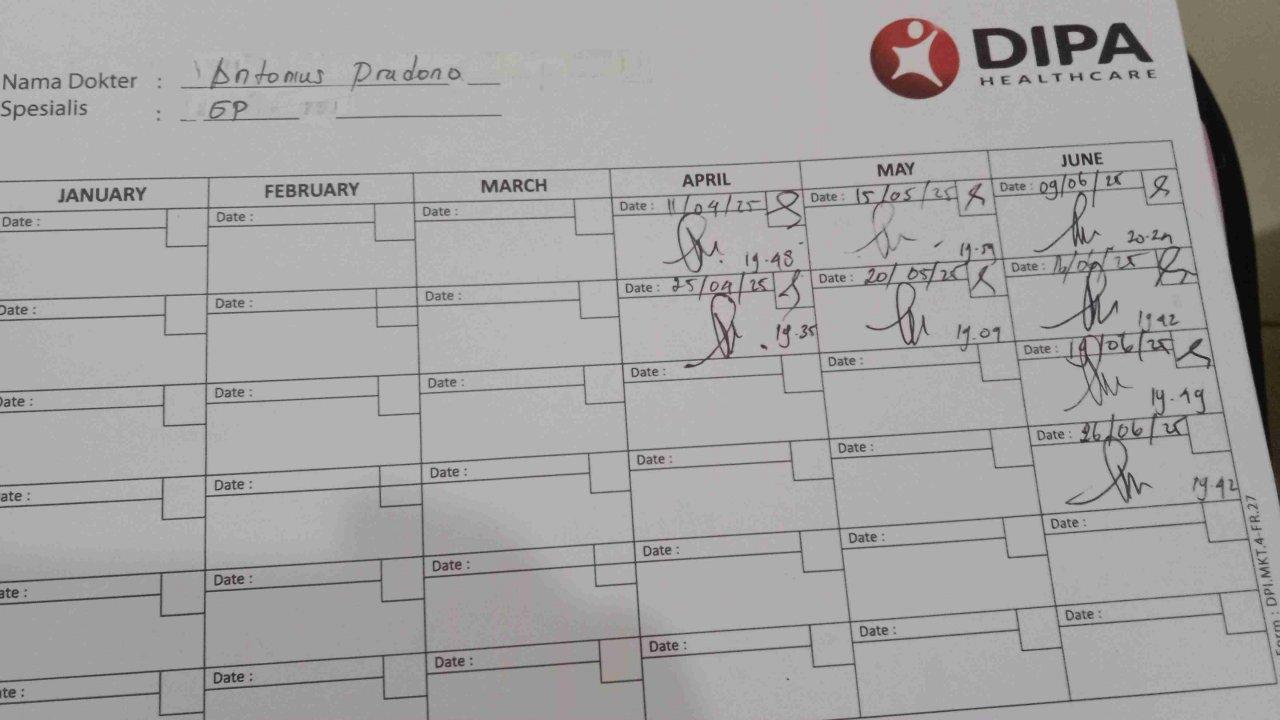 DIPA
HEALTHCARE
Nama Dokter : Antonius Pradono
Spesialis : GP
JANUARY FEBRUARY MARCH APRIL MAY JUNE
Date : Date : Date : Date : 11/04/25 Date : 15/05/25 Date : 09/06/25
19.48 19.59
Date : Date : Date : Date : 25/04/25 Date : 20/05/25 Date :
19.35 19.09 19.42
Date : Date : Date : Date : Date : Date : 19/06/25
19.49
Date : Date : Date : Date : Date : Date : 26/06/25
19.42
Date : Date : Date : Date : Date : Date :
Date : Date : Date : Date : Date : Date :
Form : DPI.MKT.4-FR.27